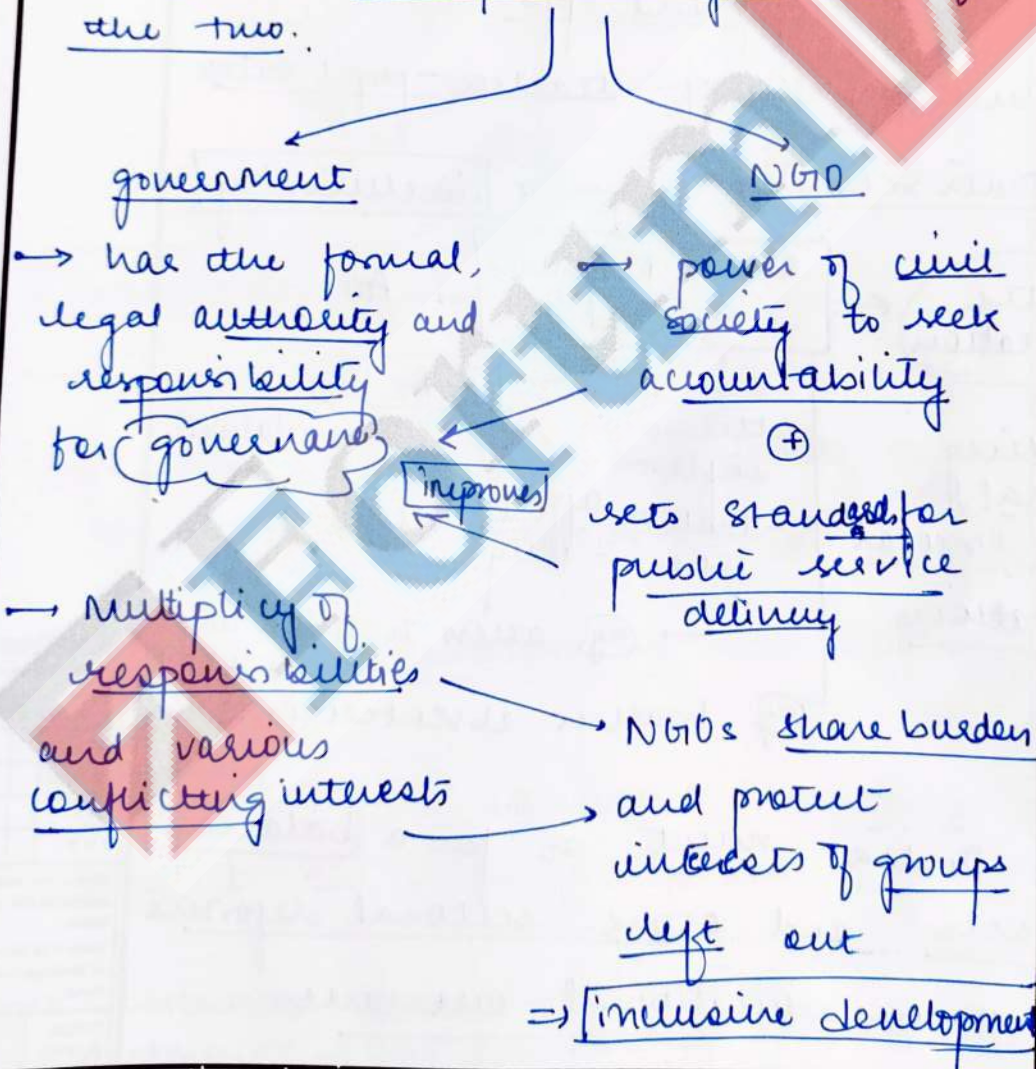 the two.
government
→ has the formal,
legal authority and
responsibility
for governance
→ Multiplicy of
responsibilities
and various
conflicting interests
NGO
→ power of civil
society to seek
accountability
+
sets standards for
public service
delivery
improves
→ NGOs share burden
and protect
interests of groups
left out
⇒ inclusive development
Forum